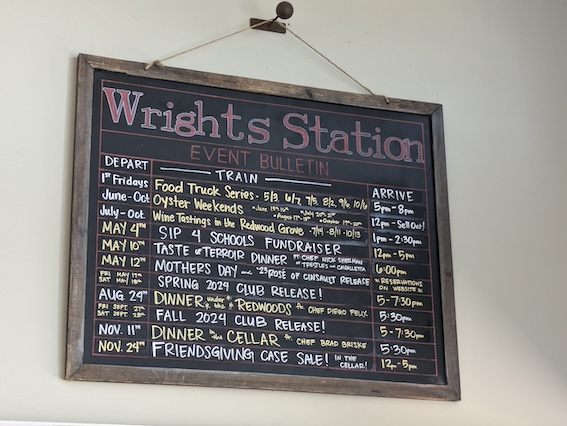 Wrights Station
EVENT BULLETIN
DEPART TRAIN ARRIVE
1st Fridays Food Truck Series - 5/3, 6/7, 7/5, 8/2, 9/6, 10/6 5pm - 8pm
June-Oct Oyster Weekends • June 15th 16th • July 20th 21st • August 17th - 18th • October 19th - 20th 12pm - Sell Out!
July-Oct. Wine Tastings in the Redwood Grove - 7/14 - 8/11 - 10/13 1pm - 2:30pm
MAY 4TH SIP 4 SCHOOLS FUNDRAISER 12pm - 5pm
MAY 10TH TASTE of TERROIR DINNER FT. CHEF NICK SHERMAN of TRESTLES and CAVALLETTA 6:00pm
MAY 12TH MOTHERS DAY and '23 ROSÉ OF CINSAULT RELEASE * RESERVATIONS ON WEBSITE *
FRI MAY 17TH SAT MAY 18TH SPRING 2024 CLUB RELEASE! 5 - 7:30pm
AUG 29TH DINNER under the REDWOODS ft. CHEF DIEGO FELIX 5:30pm
FRI SEPT 27TH SAT SEPT 28TH FALL 2024 CLUB RELEASE! 5 - 7:30pm
NOV. 11TH DINNER in the CELLAR ft. CHEF BRAD BRISKE 5:30pm
NOV. 24TH FRIENDSGIVING CASE SALE! IN THE CELLAR! 12pm - 5pm